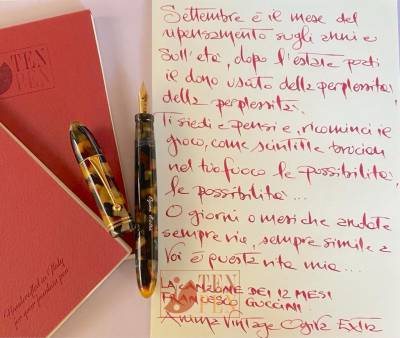 TEN
PEN
Handcrafted in Italy
for your fountain pen
Settembre è il mese del
ripensamento sugli anni e
sull'età, dopo l'estate porti
il dono usato della perplessità,
della perplessità.
Ti siedi e pensi e ricominci il
gioco, come scintille brucian
nel tuo fuoco le possibilità,
le possibilità...
O giorni o mesi che andate
sempre via, sempre simile a
voi è questa vita mia...
LA CANZONE DEI 12 MESI
FRANCESCO GUCCINI
Anima Vintage Ogiva Extra
TEN
PEN